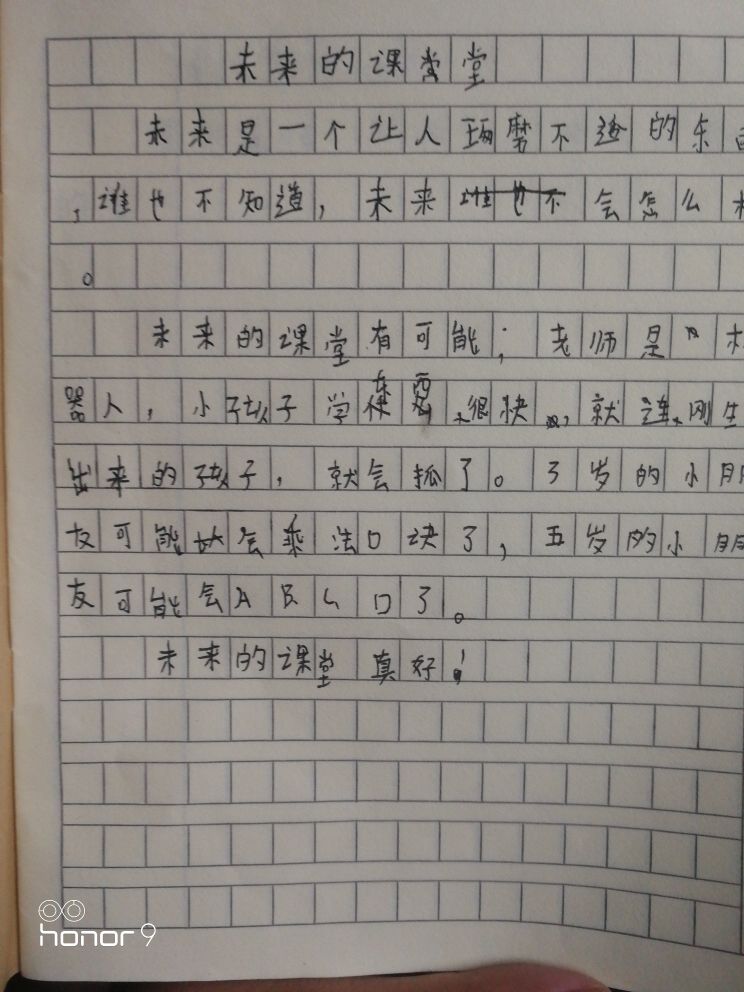 未来的课堂
未来是一个让人琢磨不透的东西
，谁也不知道，未来会怎么样
。
未来的课堂有可能；老师是机
器人，小孩子学东西很快，就连刚生
出来的孩子，就会抓了。3岁的小朋
友可能会乘法口诀了，五岁的小朋
友可能会ABCD了。
未来的课堂真好！
honor 9